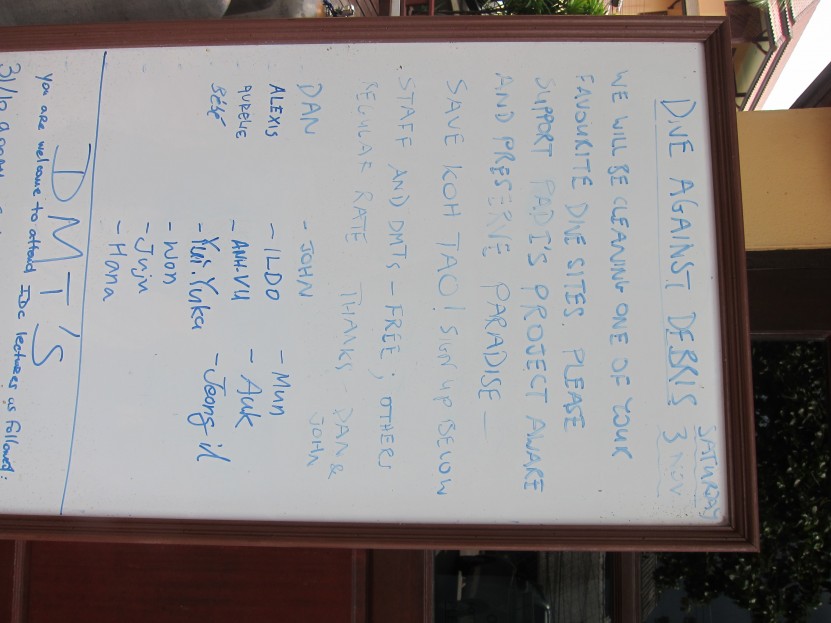 SATURDAY
DIVE AGAINST DEBRIS 3 NOV
WE WILL BE CLEANING ONE OF YOUR
FAVOURITE DIVE SITES. PLEASE
SUPPORT PADI'S PROJECT AWARE
AND PRESERVE PARADISE —
SAVE KOH TAO! SIGN UP BELOW
STAFF AND DMTS - FREE; OTHERS
REGULAR RATE THANKS - DAN &
JOHN
DAN - JOHN
ALEXIS - ILDO - Mun
AURELIE - ANH-VU - Auk
Bébé - Yui.Yuka - Joongil
- Won
- Juju
- Hana
DMT'S
You are welcome to attend IDC lectures as followed:
31/10